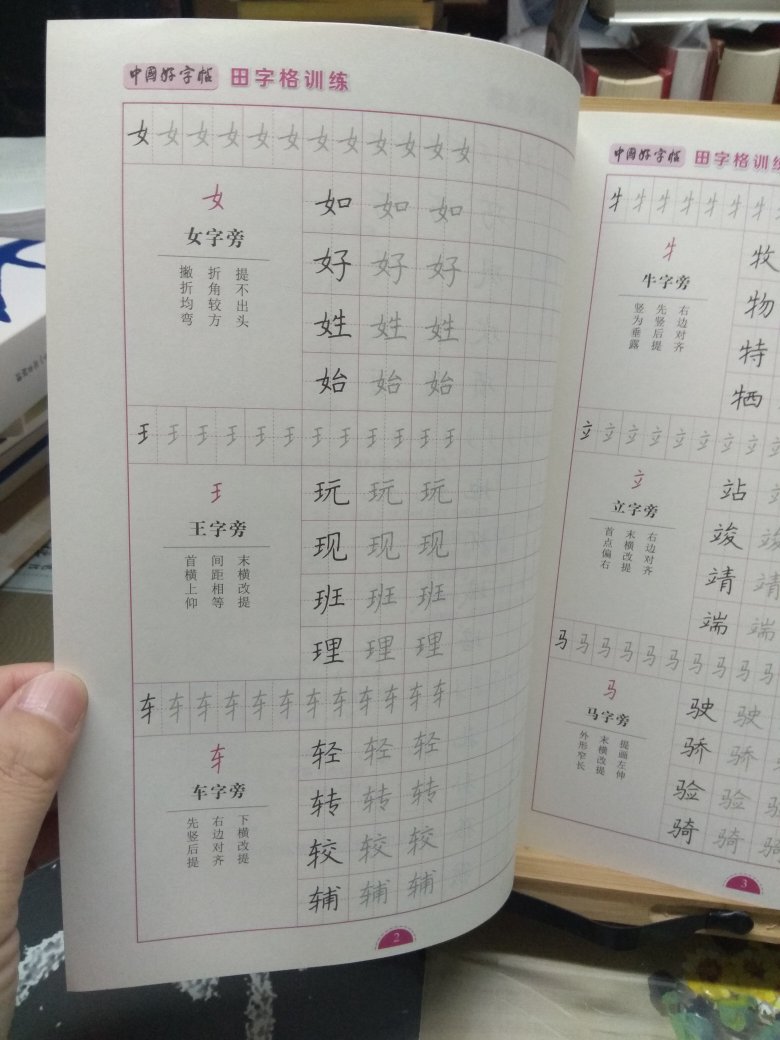 中国好字帖 田字格训练
女 女 女 女 女 女 女 女 女 女 女 女
女
女字旁
提不出头
折角较方
撇折均弯
如 如 如
好 好 好
姓 姓 姓
始 始 始
王 王 王 王 王 王 王 王 王 王 王 王
王
王字旁
末横改提
间距相等
首横上仰
玩 玩 玩
现 现 现
班 班 班
理 理 理
车 车 车 车 车 车 车 车 车 车 车 车
车
车字旁
下横改提
右边对齐
先竖后提
轻 轻 轻
转 转 转
较 较 较
辅 辅 辅
2
中国好字帖 田字格训练
牛 牛 牛 牛 牛 牛 牛 牛
牛
牛字旁
右边对齐
先竖后提
竖为垂露
牧
物
特
牺
立 立 立 立 立 立 立 立 立
立
立字旁
右边对齐
末横改提
首点偏右
站
竣 竣
靖 靖
端 端
马 马 马 马 马 马 马 马 马 马
马
马字旁
提画左伸
末横改提
外形窄长
驶 驶
骄 骄
验 验
骑 骑 骑
3